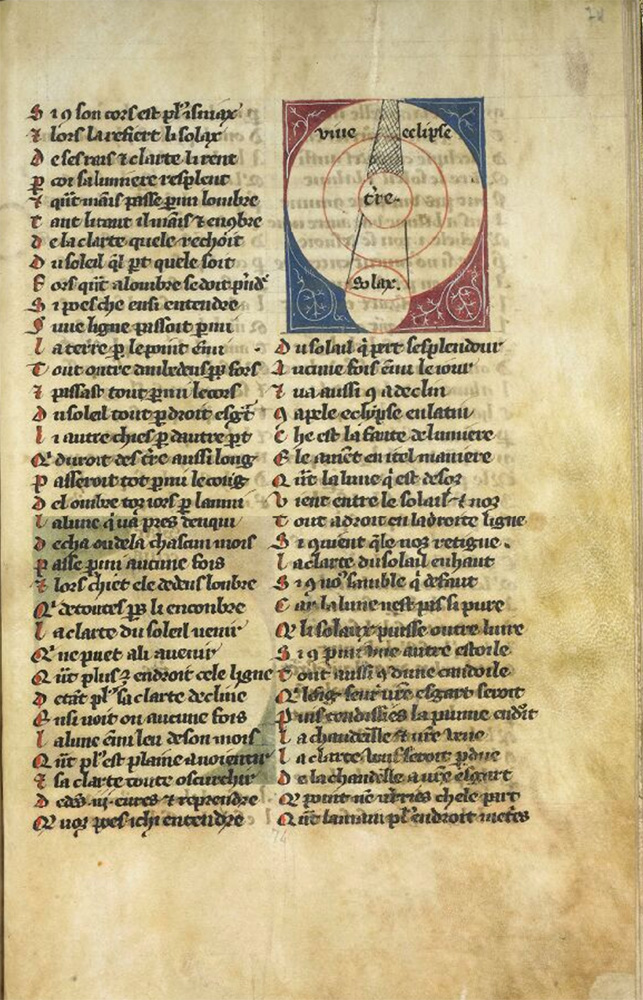 S i 9 son cors est pl' ismax
⁊ lors la refiert li solax
D e ses rais ⁊ clarte li rent
P or sa lumiere resplent
⁊ q̃nt mais passe p̱mi lombre
T ant luitant il mais ⁊ enobre
d e la clarte quele rechoit
D u soleil q̃l p̱t quele soit
F ors q̃nt a lombre se doit
S i poes che ensi entendre
S une ligne passoit p̱mi
l a terre p̱ le point ẽmi
T out outre dambedeus p̱s fors
⁊ passast tout p̱mi le cors
D u soleil tout p̱ droit esg̃t
l i autre chief p̱ dautre p̱t
Q' duroit des t're aussi long
P asseroit tot p̱mi le
D el ombre toz iors p̱ lanui
l a lune q'ua pres denqui
D echa ou dela chascun mois
P asse p̱mi aucune fois
⁊ lors chiet ele dedens lonbre
Q' de toutes p̱s li enconbre
l a clarte du soleil uenir
Q' ne puet a li auenir
Q ñt plus ⁊ endroit cele ligne
D e tãt pl' sa clarte decline
E nsi uoit on aucune fois
l a lune ẽmi leu de son mois
Q ñt pl' est plaine
⁊ sa clarte toute oscurchir
D
Q' uos poes ichi entendre
viue eclipse
t're.
Solax.
D u solail q' p̱t sesplendour
A ucune fois ẽmi le iour
⁊ ua aussi 9 a declin
9 apele eclypse en latin
C he est la faute de lumiere
E le auiẽt en itel maniere
Q ñt la lune q' est desoz
V ient entre le solail ⁊ nos
T out a droit en la droite ligne
S i 9uient q̃le nos retigne.
l a clarte du solail en haut
S i 9 no' samble q' desaut
C ar la lune nest pas si pure
Q' li solaus puisse outre luire
S i 9 p̱mi vne autre estoile
T out aussi 9 dune candoile
Q' loig seur vr̃e esgart seroit
P uis tendissies la paume endroit
l a chandeille ⁊ vr̃e veue
l a clarte vous seroit p̱due
D e la chandeille a vr̃e esgart
Q' point nẽ verries chele part
Q ñt la main pl' endroit metes